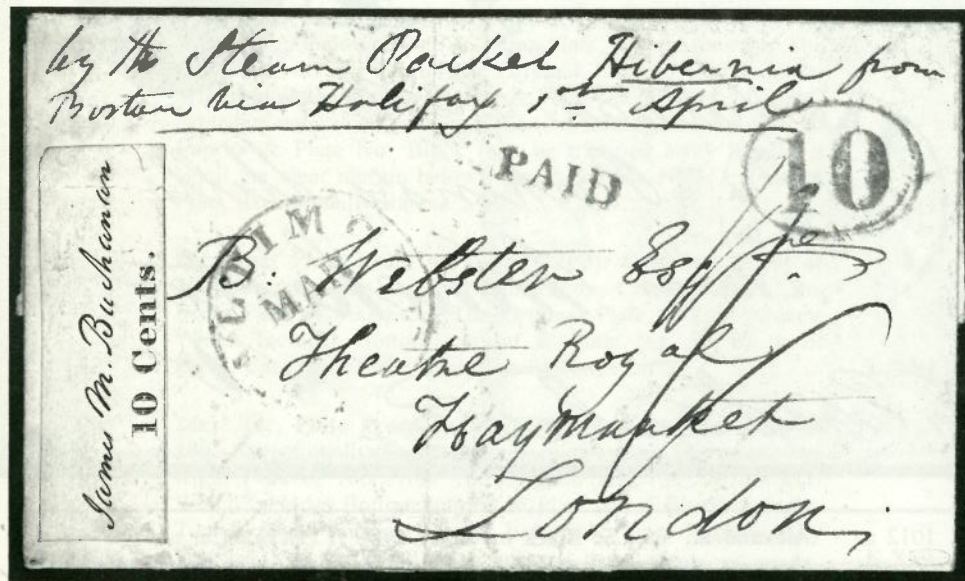 by the Steam Packet Hibernia from
Boston via Halifax 1st April
PAID
10
James M. Buchanan
10 Cents.
MAR
B. Webster Esqre
Theatre Royal
Haymarket
London
1012